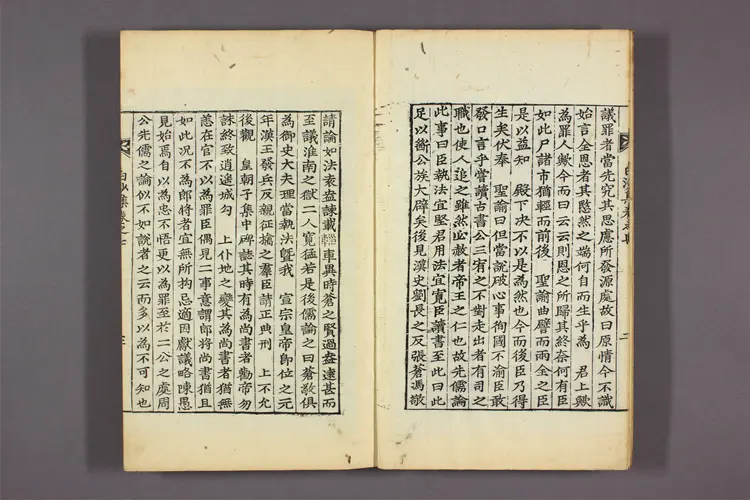 議罪者當先究其思慮所發源處故曰原情今不識
始言金恩者其慗然之端何自而生乎爲 君上歟
爲罪人歟今而曰云云則恩之所歸其終奈何有臣
如此尸諸市猶輕而前後 聖諭曲譬而兩全之臣
是以益知 殿下決不以是爲然也今而後臣乃得
生矣伏奉 聖諭曰但當說破心事徇國不渝臣敢
發口言乎嘗讀古書公三宥之不對走出者有司之
職也使人追之雖然必赦者帝王之仁也故先儒論
此事曰臣執法宜堅君用法宜寬臣讀書至此曰此
足以衡公族大辟矣後見漢史劉長之反張蒼馮敬
請論如法袁盎諫載 車異時蒼之賢過盎遠甚而
至議淮南之獄二人寬猛若是後儒論之曰蒼敬俱
爲御史大夫理當執法曁我 宣宗皇帝卽位之元
年漢王發兵反親征擒之羣臣請正典刑 上不允
後觀 皇朝子集中碑誌其時有爲尚書者勸帝勿
誅終致逍遙城勾 上仆地之變其爲尚書者猶無
恙在官不以爲罪臣偶見二事意謂郎將尚書猶且
如此况不爲郎將者宜無所拘忌適因獻議略陳愚
見始焉自以爲忠不悟更以爲罪至於二公之處周
公先儒之論似不如說者之云而多以爲不可知也